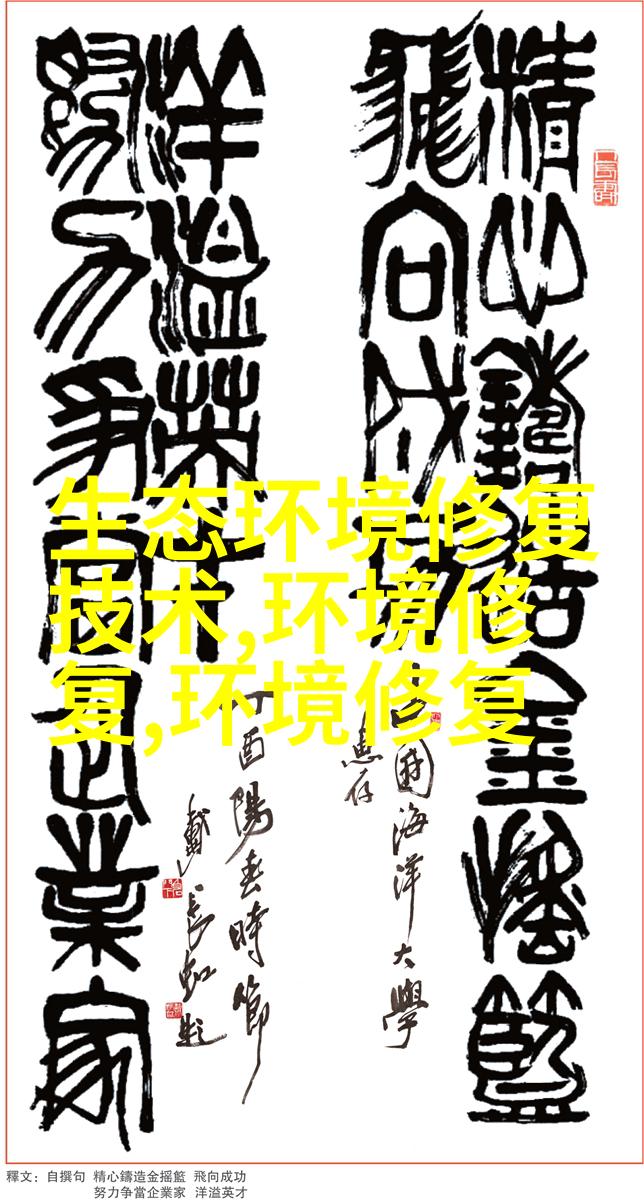 精心鑄造金搖籃
飛向成功
中國海洋大學
惠存
努力争當企業家
洋溢英才
丁酉陽春時節
戴長虹題
生态环境修复
技术,环境修
复,环境修复
釋文：自撰句 精心鑄造金摇籃 飛向成功
努力争當企業家 洋溢英才